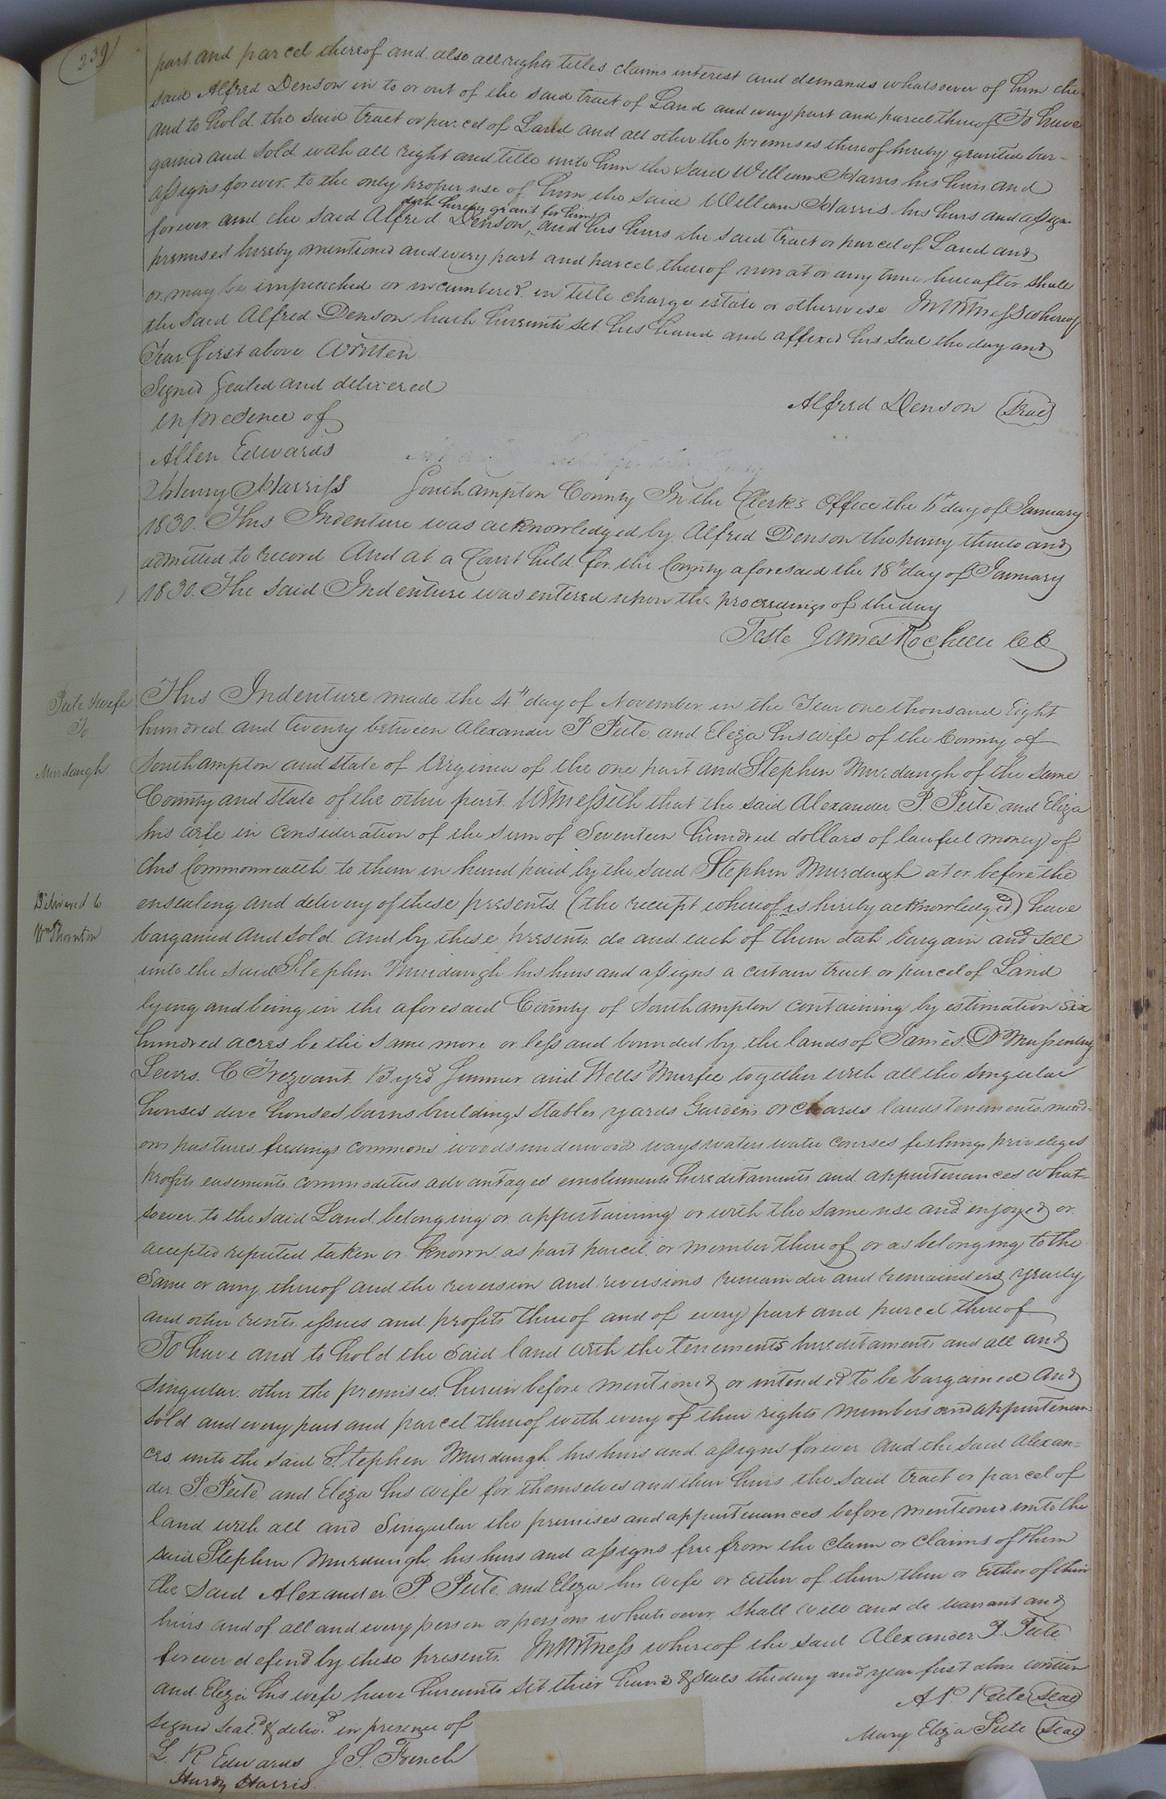 339
part and parcel thereof and also all rights titles claims interest and demands whatsoever of him the
said Alfred Denson in to or out of the said tract of Land and every part and parcel thereof To have
and to hold the said tract or parcel of Land and all other the premises thereof hereby granted bar-
gained and sold with all right and title unto him the said William Harris his heirs and
assigns forever to the only proper use of him the said William Harris his heirs and assigns
doth hereby grant for him
forever and the said Alfred Denson and his heirs the said tract or parcel of Land and
premises hereby mentioned and every part and parcel thereof now at or any time hereafter shall
or may be impeached or incumbered in title charge estate or otherwise In Witness whereof
the said Alfred Denson hath hereunto set his hand and affixed his seal the day and
Year first above Written
Signed Sealed and delivered
in presence of
Alfred Denson (Seal)
Allen Edwards
Henry Harriss
Southampton County In the Clerk's Office the day of January
1830. This Indenture was acknowledged by Alfred Denson the party thereto and
admitted to record And at a Court held for the County aforesaid the 18th day of January
1830. The said Indenture was entered upon the proceedings of the day
Teste James Rochelle CC
Pete & wife
To
Murdaugh
This Indenture made the 4th day of November in the Year one thousand Eight
hundred and twenty between Alexander P Pete and Eliza his wife of the County of
Southampton and state of Virginia of the one part and Stephen Murdaugh of the same
County and state of the other part Witnesseth that the said Alexander P. Pete and Eliza
his wife in consideration of the sum of Seventeen hundred dollars of lawful money of
this Commonwealth to them in hand paid by the said Stephen Murdaugh at or before the
Delivered to
Wm Thornton
ensealing and delivery of these presents (the receipt whereof is hereby acknowledged) have
bargained and sold and by these presents do and each of them doth bargain and sell
unto the said Stephen Murdaugh his heirs and assigns a certain tract or parcel of Land
lying and being in the aforesaid County of Southampton containing by estimation six
hundred acres be the same more or less and bounded by the lands of James D Massenburg
Lewis C Trezvant Byrd and Wells Murfee together with all the singular
houses dove houses barns buildings stables yards Gardens orchards lands tenements mead-
ows pastures feedings commons woods underwood ways waters water courses fishings privileges
profits easements commodities advantages emoluments hereditaments and appurtenances what-
soever to the said Land belonging or appertaining or with the same use and enjoyed or
accepted reputed taken or known as part parcel or member thereof or as belonging to the
Same or any thereof and the reversion and reversions remainder and remainders yearly
and other rents issues and profits thereof and of every part and parcel thereof
To have and to hold the said land with the tenements hereditaments and all and
Singular other the premises herein before mentioned or intended to be bargained and
sold and every part and parcel thereof with every of their rights members and appurtenan-
ces unto the said Stephen Murdaugh his heirs and assigns forever and the said Alexan-
der P Pete and Eliza his wife for themselves and their heirs the said tract or parcel of
land with all and Singular the premises and appurtenances before mentioned unto the
said Stephen Murdaugh his heirs and assigns free from the claim or claims of them
the said Alexander P. Pete and Eliza his wife or either of them their or either of their
heirs and of all and every person or persons whatsoever shall will and do warrant and
forever defend by these presents In Witness whereof the said Alexander P. Pete
and Eliza his wife have hereunto set their hand & seals the day and year first above written
Signed Seal'd & deliv'd in presence of
A P Pete (Seal)
Mary Eliza Pete (Seal)
L R Edwards J. S. French
Hardy Harris